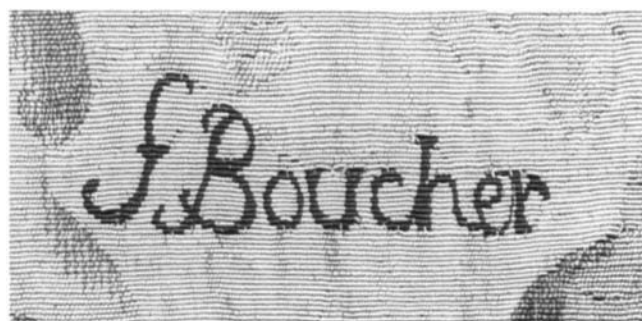 f. Boucher